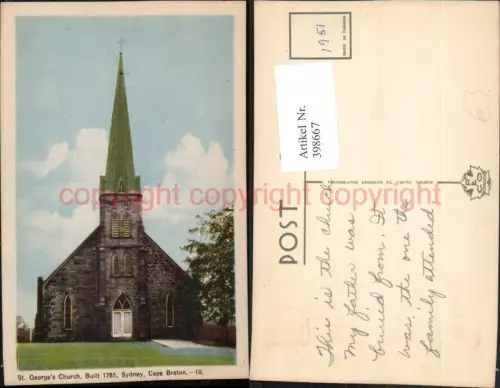 St. George's Church, Built 1785, Sydney, Cape Breton.—10.
copyright copyright copyright copyright copyright
1951
MADE IN CANADA
Artikel Nr.
398667
PHOTOGELATINE ENGRAVING CO. LIMITED TORONTO
PECO
POST
This is the church
my father was
buried from. It
was the one the
family attended